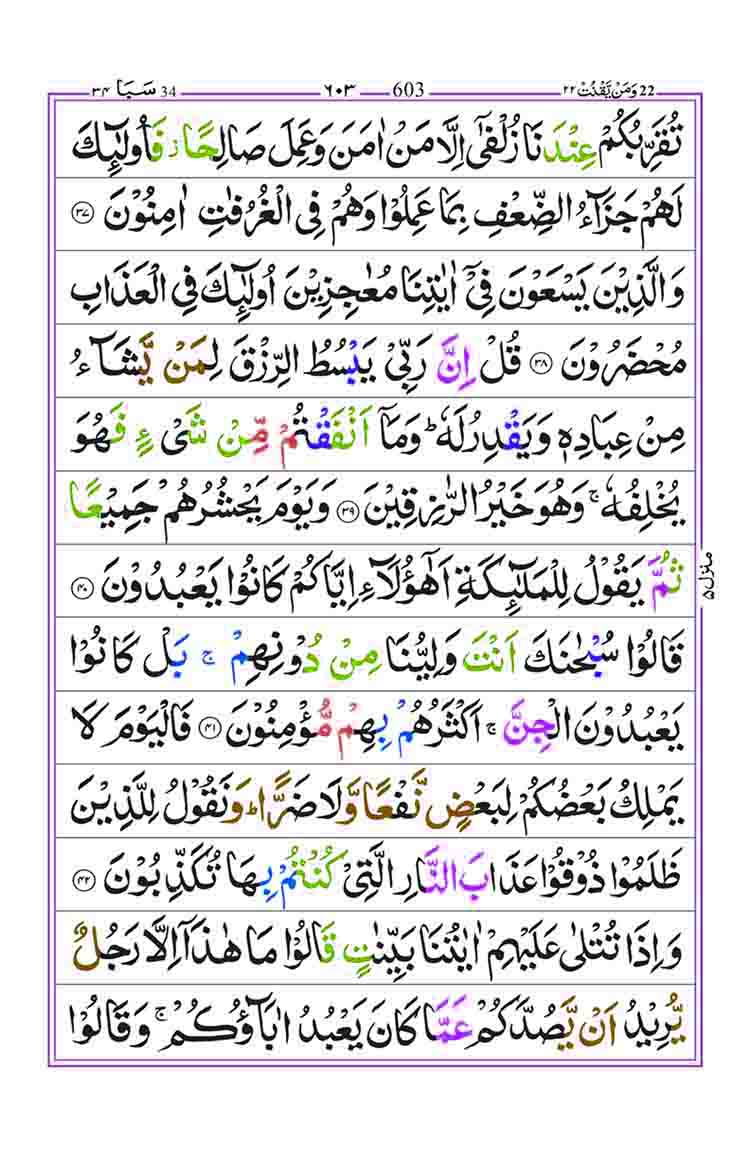 22 وَمَنْ يَّقْنُتْ ٢٢ 603 ٦٠٣ 34 سَبَا ٣٤
تُقَرِّبُكُمْ عِنْدَنَا زُلْفٰٓى اِلَّا مَنْ اٰمَنَ وَعَمِلَ صَالِحًا ز فَاُولٰٓئِكَ
لَهُمْ جَزَآءُ الضِّعْفِ بِمَا عَمِلُوْا وَهُمْ فِى الْغُرُفٰتِ اٰمِنُوْنَ ٣٧
وَالَّذِيْنَ يَسْعَوْنَ فِىْٓ اٰيٰتِنَا مُعٰجِزِيْنَ اُولٰٓئِكَ فِى الْعَذَابِ
مُحْضَرُوْنَ ٣٨ قُلْ اِنَّ رَبِّىْ يَبْسُطُ الرِّزْقَ لِمَنْ يَّشَآءُ
مِنْ عِبَادِهٖ وَيَقْدِرُ لَهٗ ؕ وَمَآ اَنْفَقْتُمْ مِّنْ شَىْءٍ فَهُوَ
يُخْلِفُهٗ ۚ وَهُوَ خَيْرُ الرّٰزِقِيْنَ ٣٩ وَيَوْمَ يَحْشُرُهُمْ جَمِيْعًا
ثُمَّ يَقُوْلُ لِلْمَلٰٓئِكَةِ اَهٰٓؤُلَآءِ اِيَّاكُمْ كَانُوْا يَعْبُدُوْنَ ٤٠
منزل ۵
قَالُوْا سُبْحٰنَكَ اَنْتَ وَلِيُّنَا مِنْ دُوْنِهِمْ ۚ بَلْ كَانُوْا
يَعْبُدُوْنَ الْجِنَّ ۚ اَكْثَرُهُمْ بِهِمْ مُّؤْمِنُوْنَ ٤١ فَالْيَوْمَ لَا
يَمْلِكُ بَعْضُكُمْ لِبَعْضٍ نَّفْعًا وَّلَا ضَرًّا ؕ وَنَقُوْلُ لِلَّذِيْنَ
ظَلَمُوْا ذُوْقُوْا عَذَابَ النَّارِ الَّتِىْ كُنْتُمْ بِهَا تُكَذِّبُوْنَ ٤٢
وَاِذَا تُتْلٰى عَلَيْهِمْ اٰيٰتُنَا بَيِّنٰتٍ قَالُوْا مَا هٰذَآ اِلَّا رَجُلٌ
يُّرِيْدُ اَنْ يَّصُدَّكُمْ عَمَّا كَانَ يَعْبُدُ اٰبَآؤُكُمْ ۚ وَقَالُوْا